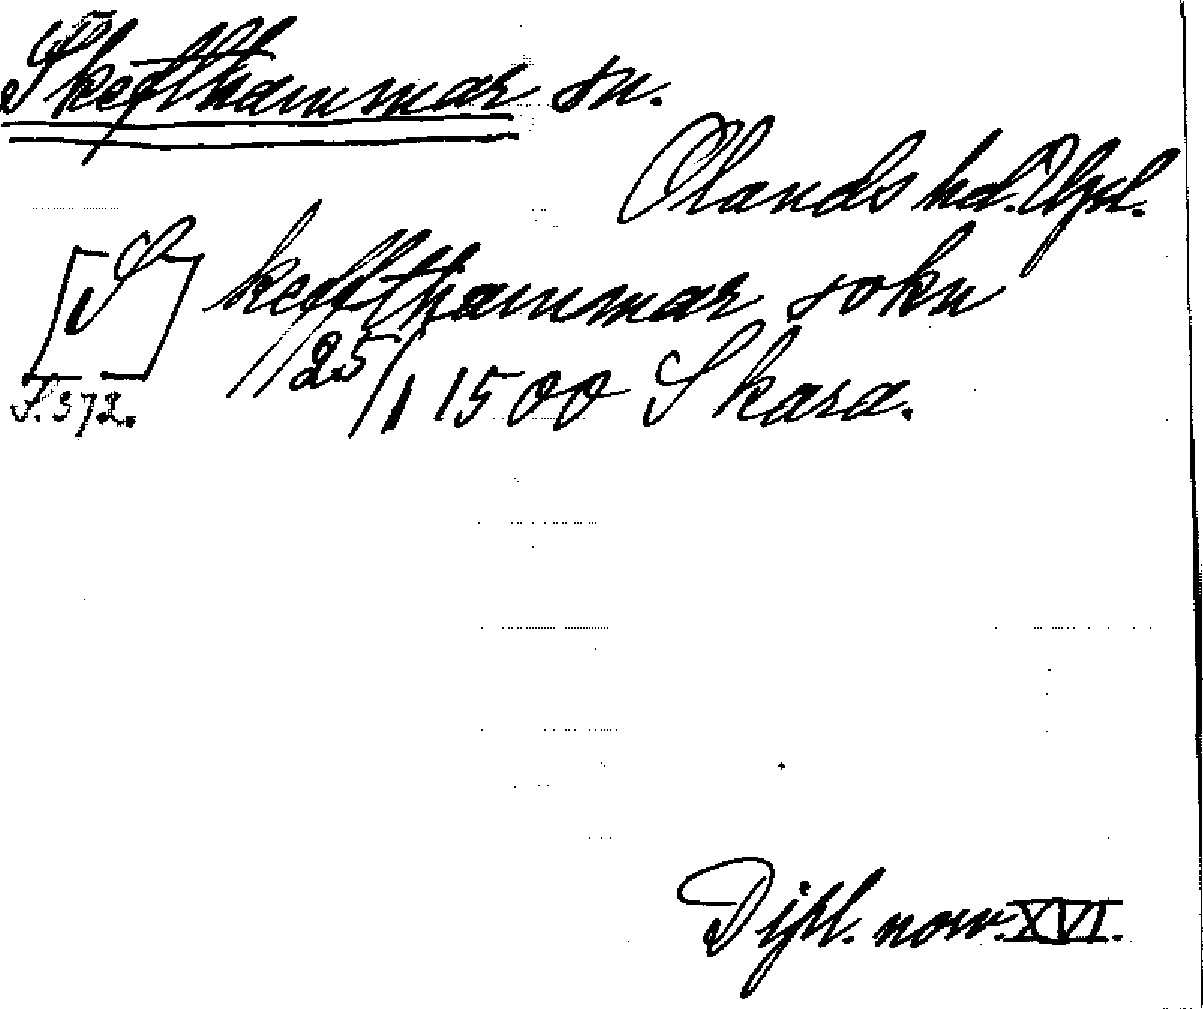 Skefthammar sn.
Olands hd. Upl.
[S]keffthammar sokn
S. 372. 25/1 1500 Skara.
Dipl. norv. XVI.